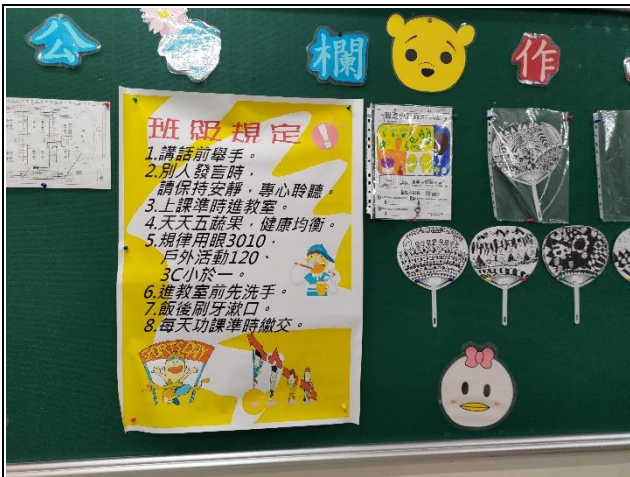 公
欄
作
班級規定
1.講話前舉手。
2.別人發言時,
請保持安靜,專心聆聽。
3.上課準時進教室。
4.天天五蔬果,健康均衡。
5.規律用眼3010,
戶外活動120、
3C小於一。
6.進教室前先洗手。
7.飯後刷牙漱口。
8.每天功課準時繳交。
SPORTS DAY